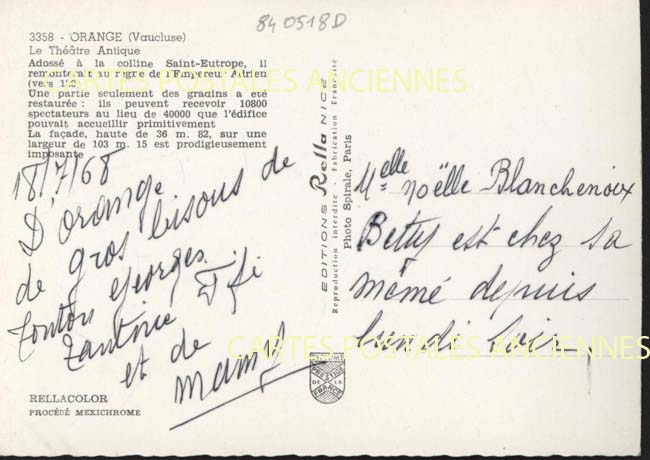 84 0518D
3358 - ORANGE (Vaucluse)
Le Théâtre Antique
Adossé à la colline Saint-Eutrope, il
remonterait au règne de l'Empereur Adrien
(vers 120).
Une partie seulement des gradins a été
restaurée : ils peuvent recevoir 10800
spectateurs au lieu de 40000 que l'édifice
pouvait accueillir primitivement
La façade, haute de 36 m. 82, sur une
largeur de 103 m. 15 est prodigieusement
imposante
18/7/68
D'orange
de gros bisous de
tonton georges
tantine Fifi
et de
mamy
RELLACOLOR
PROCÉDÉ MEXICHROME
EDITIONS Rella NICE
Reproduction interdite - Fabrication Française
Photo Spirale, Paris
PRESTIGE
DE LA
FRANCE
Melle noëlle Blanchenoix
Betty est chez sa
mémé depuis
lundi soir
CARTES POSTALES ANCIENNES
CARTES POSTALES ANCIENNES